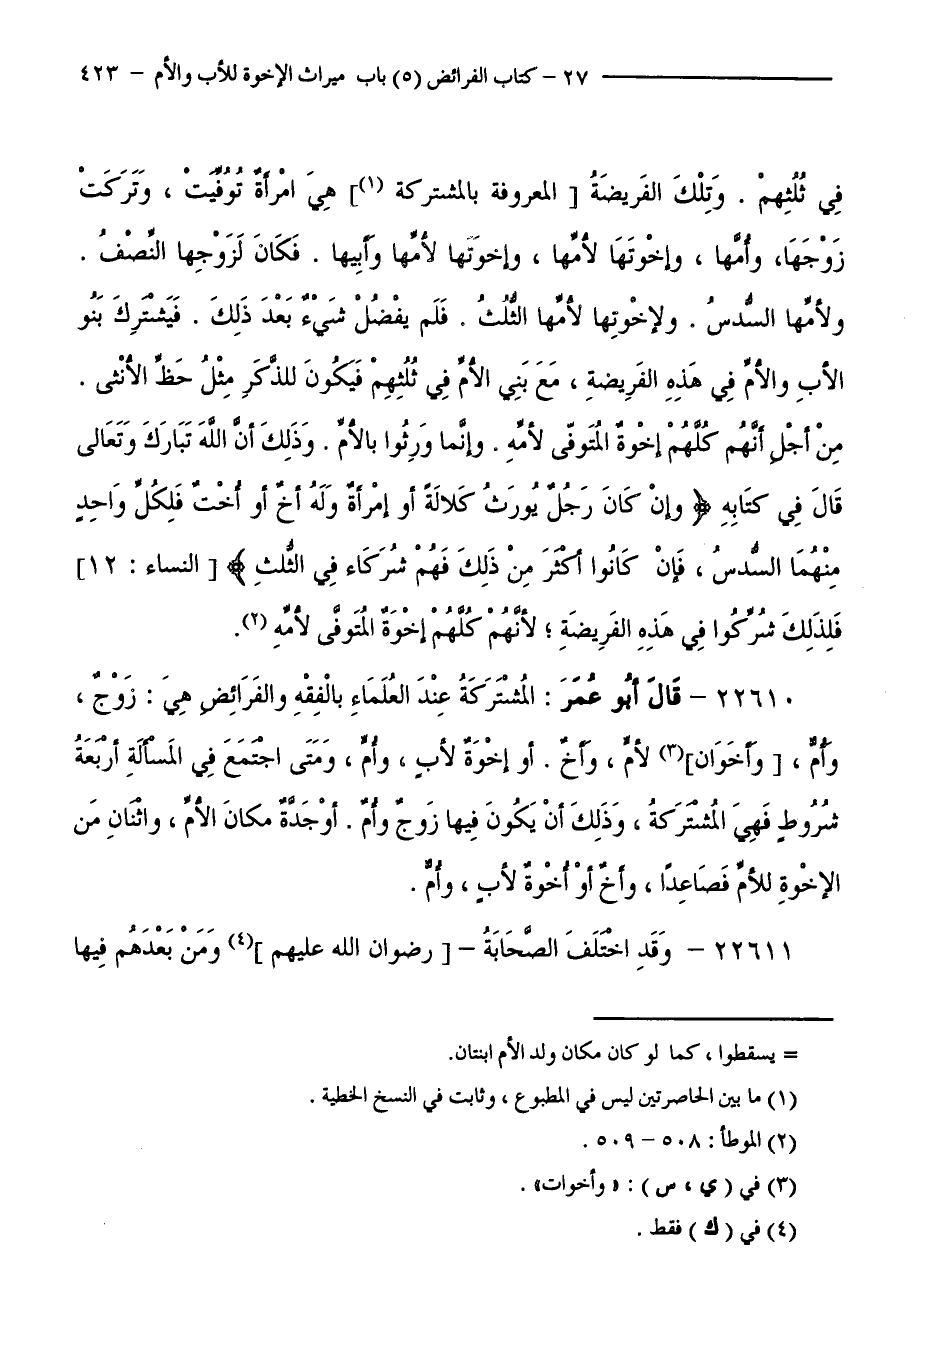 ٢٧ – كتاب الفرائض (٥) باب ميراث الإخوة للأب والأم – ٤٢٣
فِي ثُلُثِهِمْ . وَتِلْكَ الفَرِيضَةُ [ المعروفة بالمشتركة (١)] هِيَ امْرَأَةٌ تُوُفِّيَتْ ، وَتَرَكَتْ
زَوْجَهَا، وأُمَّها ، وإخْوتَهَا لأمِّها ، وإخوَتَها لأمِّها وَأَبِيها . فَكَانَ لَزَوْجِها النِّصْفُ .
ولأمِّها السُّدسُ . ولإخْوتِها لأمِّها الثُّلثُ . فَلَم يفْضُلْ شَيْءٌ بَعْدَ ذَلِكَ . فَيَشْتَرِكَ بَنُو
الأبِ والأمِّ فِي هَذِهِ الفَرِيضةِ ، مَعَ بَنِي الأمِّ فِي ثُلُثِهِمْ فَيَكُونَ للذَّكَرِ مِثْلُ حَظِّ الأُنْثى .
مِنْ أجْلِ أنَّهُم كُلَّهُمْ إخْوةُ المُتَوفّى لأمِّهِ . وإنَّما وَرِثُوا بالأُمِّ . وَذَلِكَ أنَّ اللَّهَ تَبَارَكَ وَتَعَالى
قَالَ فِي كتَابِهِ ﴿ وإنْ كَانَ رَجُلٌ يُورَثُ كَلالَةً أو إمْرأةٌ وَلَهُ أخٌ أو أُخْتٌ فَلِكُلِّ وَاحِدٍ
مِنْهُمَا السُّدسُ ، فَإنْ كَانُوا أكْثَرَ مِنْ ذَلِكَ فَهُمْ شُرَكَاء فِي الثُّلثِ ﴾ [ النساء : ١٢]
فَلِذَلِكَ شُرِّكُوا فِي هَذِهِ الفَرِيضَةِ ؛ لأنَّهُمْ كُلَّهُمْ إخْوَةُ المُتَوفَّى لأُمِّهِ (٢).
٢٢٦١٠ – قَالَ أَبُو عُمَرَ : المُشْتَرَكَةُ عِنْدَ العُلَمَاءِ بالْفِقْهِ والفَرَائِضِ هِيَ : زَوْجٌ ،
وَأُمٌّ ، [ وأَخَوَان](٣) لأمٍّ ، وَأخٌ . أو إخْوَةٌ لأبٍ ، وأمٍّ ، وَمَتَى اجتَمَعَ فِي المَسألَةِ أرْبَعَةُ
شُرُوطٍ فَهِيَ المُشْتَرَكَةُ ، وَذَلِكَ أنْ يَكُونَ فِيها زَوجٌ وأُمٌ . أوْجَدَّةٌ مكانَ الأمِّ ، واثْنَانِ مَن
الإخْوةِ للأمِّ فَصَاعِدًا ، وأَخٌ أوْ أُخْوةٌ لأبٍ ، وأُمٍّ .
٢٢٦١١ – وَقَدِ اختَلَفَ الصَّحَابَةُ – [ رضوان الله عليهم ](٤) وَمَنْ بَعْدَهُم فِيها
= يسقطوا ، كما لو كان مكان ولد الأم ابنتان.
(١) ما بين الحاصرتين ليس في المطبوع ، وثابت في النسخ الخطية .
(٢) الموطأ : ٥٠٨ – ٥٠٩ .
(٣) في ( ي ، س ) : « وأخوات» .
(٤) في ( ك ) فقط .